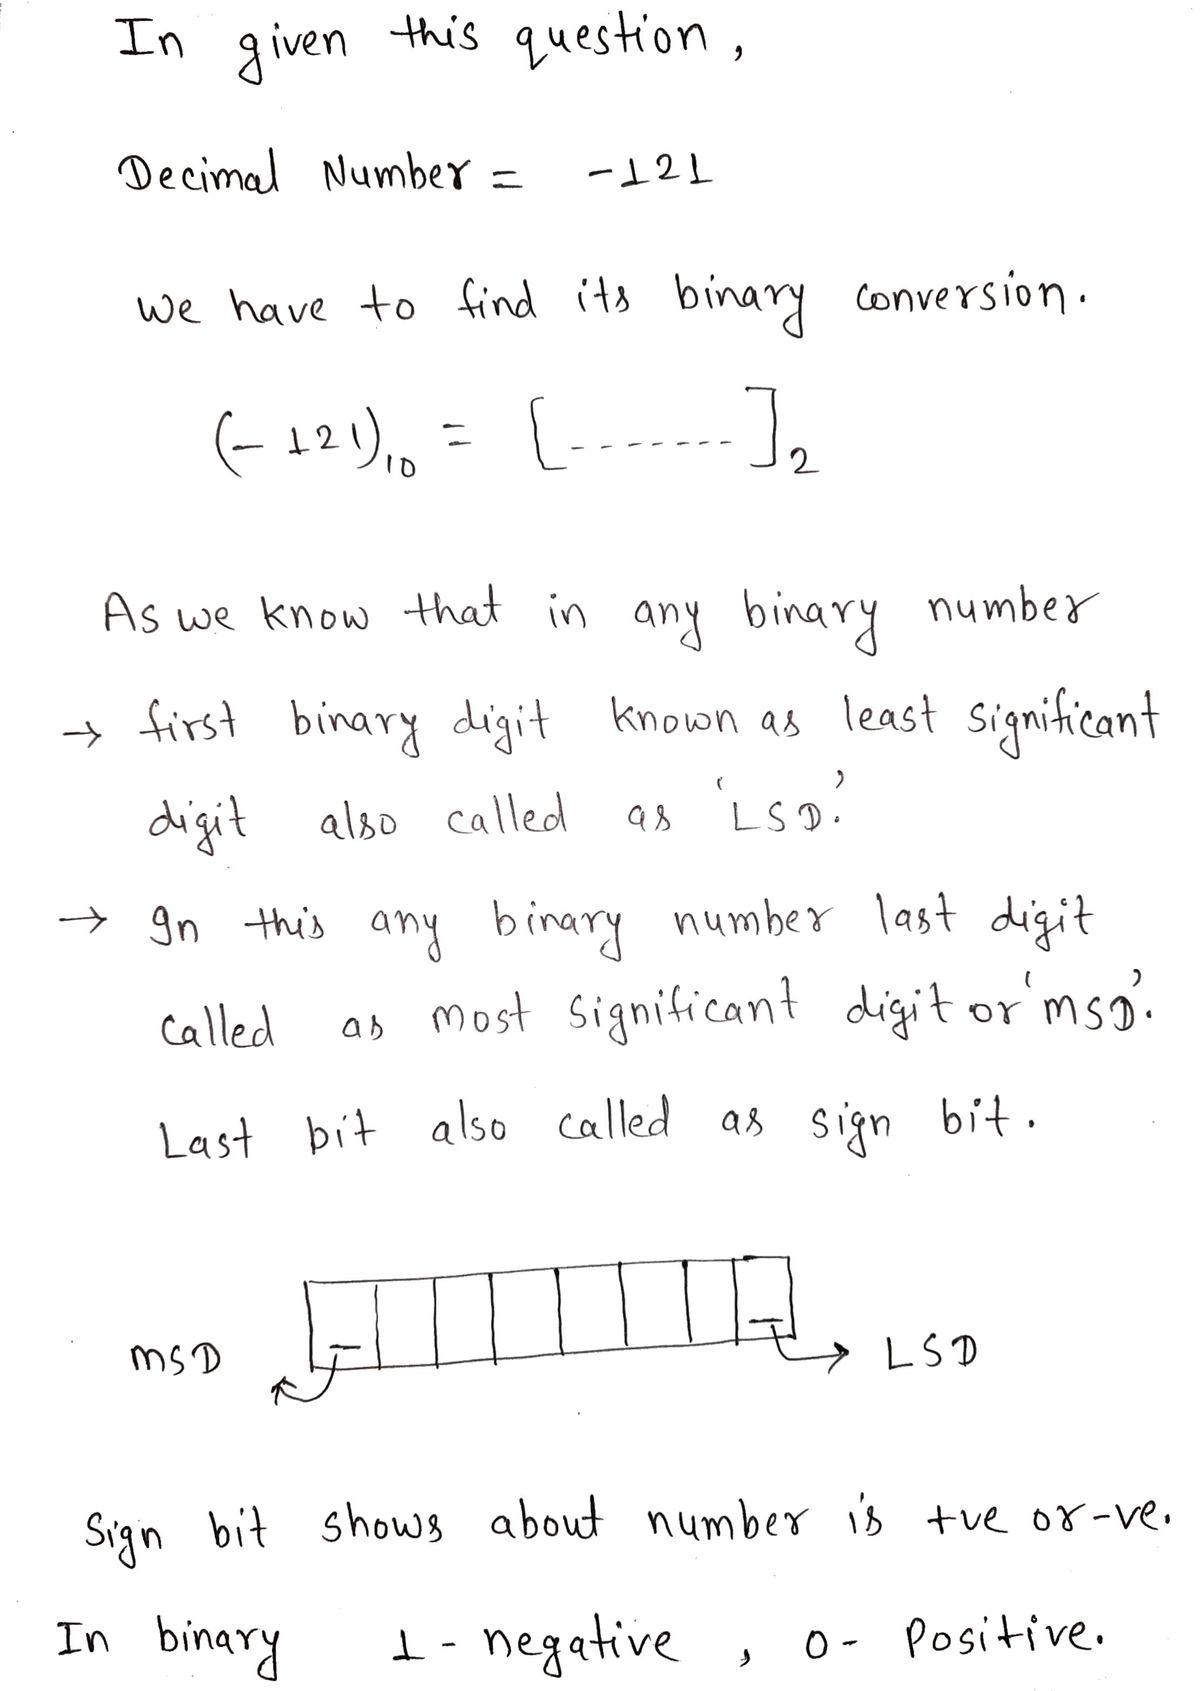 In given this question,
Decimal Number = -121
We have to find its binary conversion.
(-121)₁₀ = [--------]₂
As we know that in any binary number
→ first binary digit known as least significant
digit also called as 'LSD.'
→ In this any binary number last digit
called as most significant digit or 'MSD'.
Last bit also called as sign bit.
MSD LSD
Sign bit shows about number is +ve or -ve.
In binary 1 - negative , 0 - Positive.